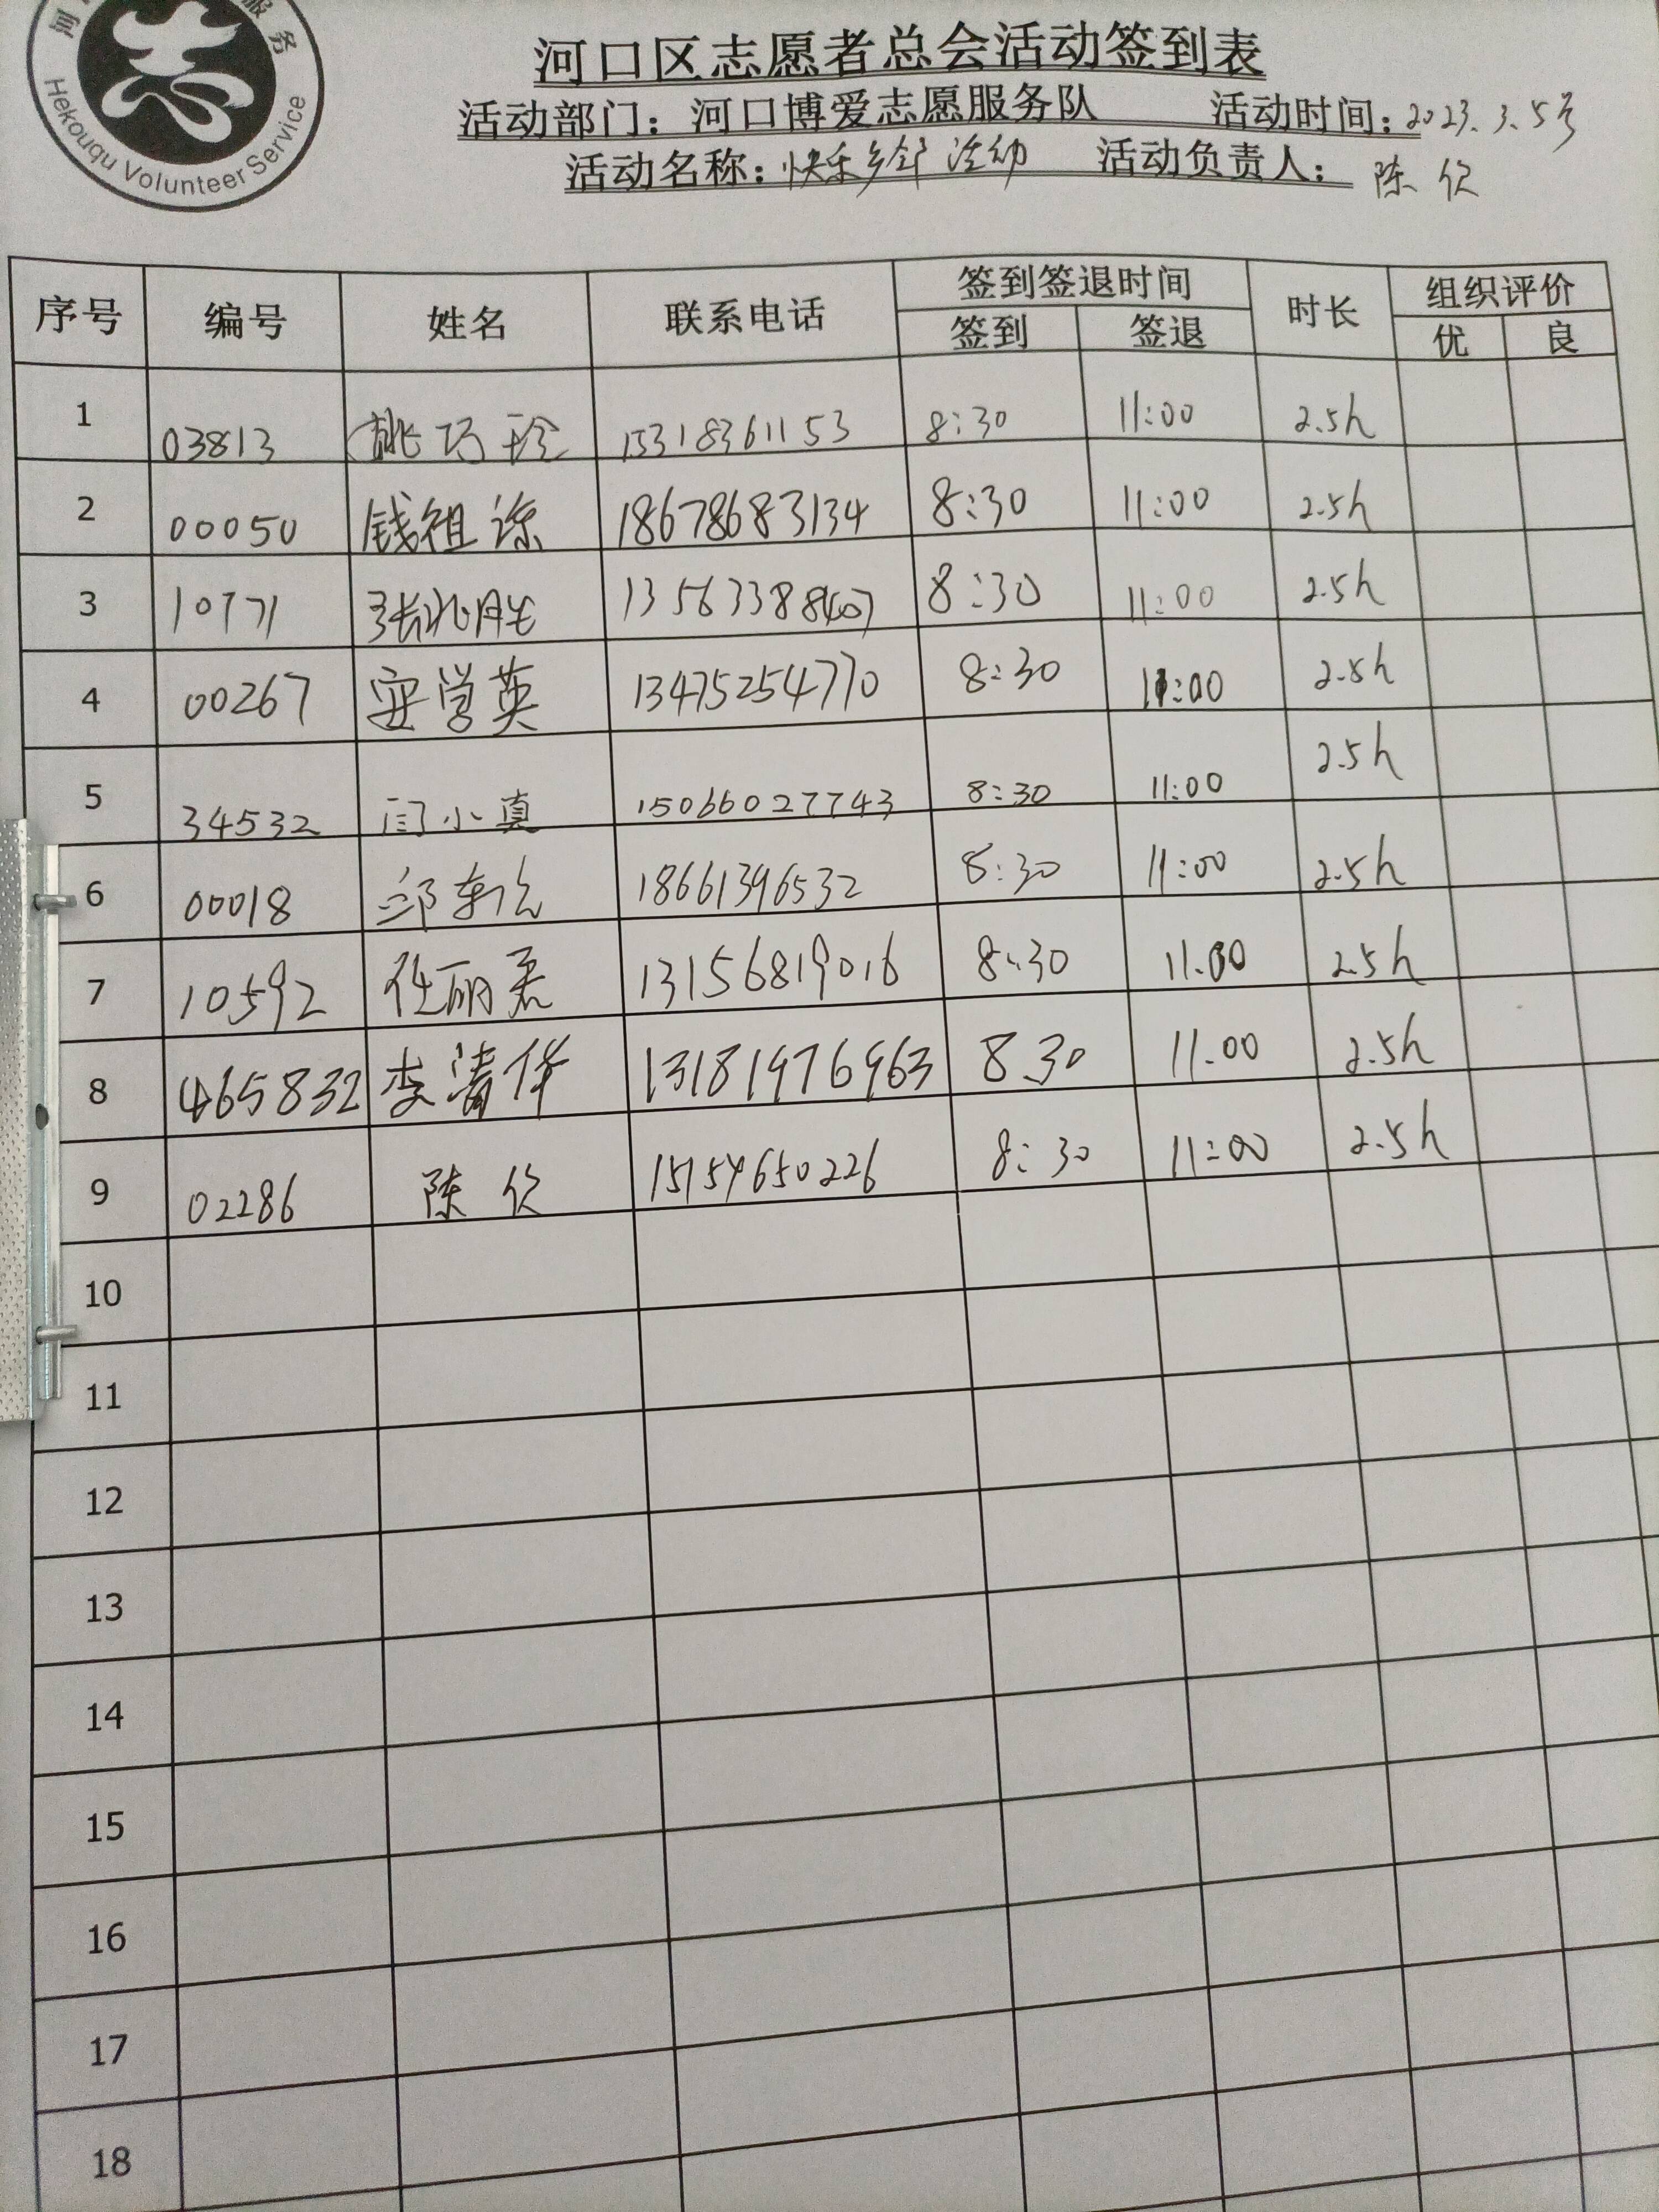 服务
Hekouqu Volunteer Service
河口区志愿者总会活动签到表
活动部门：河口博爱志愿服务队 活动时间：2023.3.5号
活动名称：快乐乡邻活动 活动负责人：陈
序号 编号 姓名 联系电话 签到签退时间 时长 组织评价
签到 签退 优 良
1 03813 姚巧玲 15318361153 8:30 11:00 2.5h
2 00050 钱祖 18678683134 8:30 11:00 2.5h
3 10771 张兆胜 8:30 11:00 2.5h
4 00267 安学英 13475254770 8:30 11:00 2.5h
5 34532 闫小真 15066027743 8:30 11:00 2.5h
6 00018 邱 18661396532 8:30 11:00 2.5h
7 10592 任丽君 13156819016 8:30 11.00 2.5h
8 465832 李清华 13181976963 8.30 11.00 2.5h
9 02286 陈 15154650226 8:30 11:00 2.5h
10
11
12
13
14
15
16
17
18